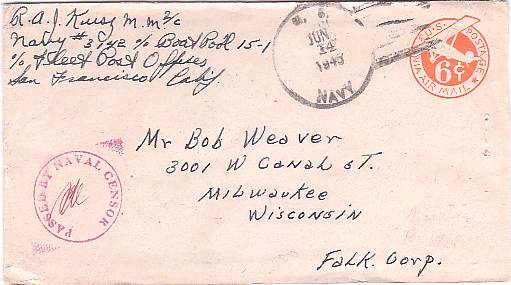 R.A.J. Krug M.M 2/c
Navy #3142 c/o Boat Pool 15-1
c/o Fleet Post Office
San Francisco Calif.
U.S.
JUN
14
1945
NAVY
U.S. POSTAGE
VIA AIR MAIL
6¢
Mr Bob Weaver
3001 W Canal ST.
Milwaukee
Wisconsin
Falk. Corp.
PASSED BY NAVAL CENSOR